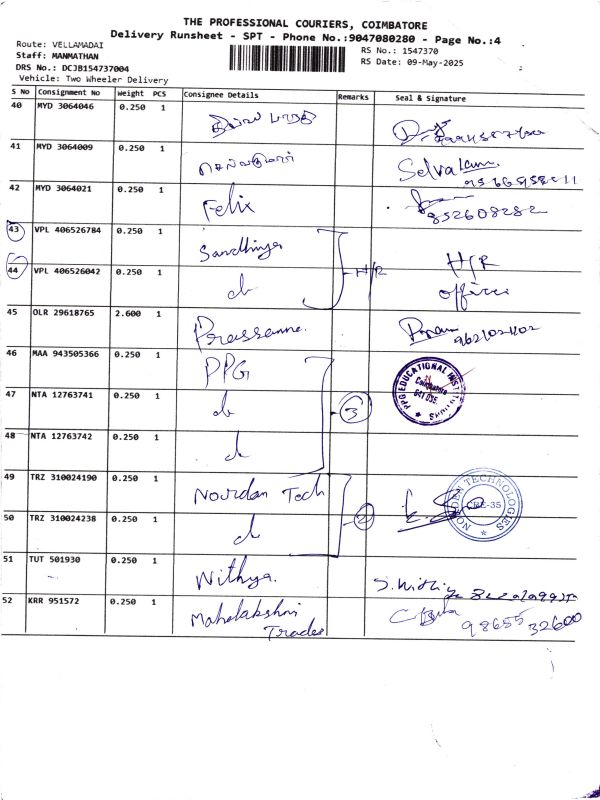 THE PROFESSIONAL COURIERS, COIMBATORE
Delivery Runsheet - SPT - Phone No.:9047080280 - Page No.:4
Route: VELLAMADAI
Staff: MANMATHAN
DRS No.: DCJB154737004
Vehicle: Two Wheeler Delivery
RS No.: 1547370
RS Date: 09-May-2025
S No Consignment No Weight PCS Consignee Details Remarks Seal & Signature
40 MYD 3064046 0.250 1
41 MYD 3064009 0.250 1 செல்வகுமார் Selvakum
42 MYD 3064021 0.250 1 Felix 852608282
43 VPL 406526784 0.250 1 Sandhiya H/R
44 VPL 406526042 0.250 1 do H/R office
45 OLR 29618765 2.600 1 Prassanna.
46 MAA 943505366 0.250 1 PPG PPG EDUCATIONAL INSTITUTIONS Coimbatore 641 035.
47 NTA 12763741 0.250 1 do 3
48 NTA 12763742 0.250 1 do
49 TRZ 310024190 0.250 1 Nourdan Tech NORDEN TECHNOLOGIES CBE-35
50 TRZ 310024238 0.250 1 do 2
51 TUT 501930 0.250 1 Nithya. S. Nithiya
52 KRR 951572 0.250 1 Mahalakshmi Trades 98655 32600